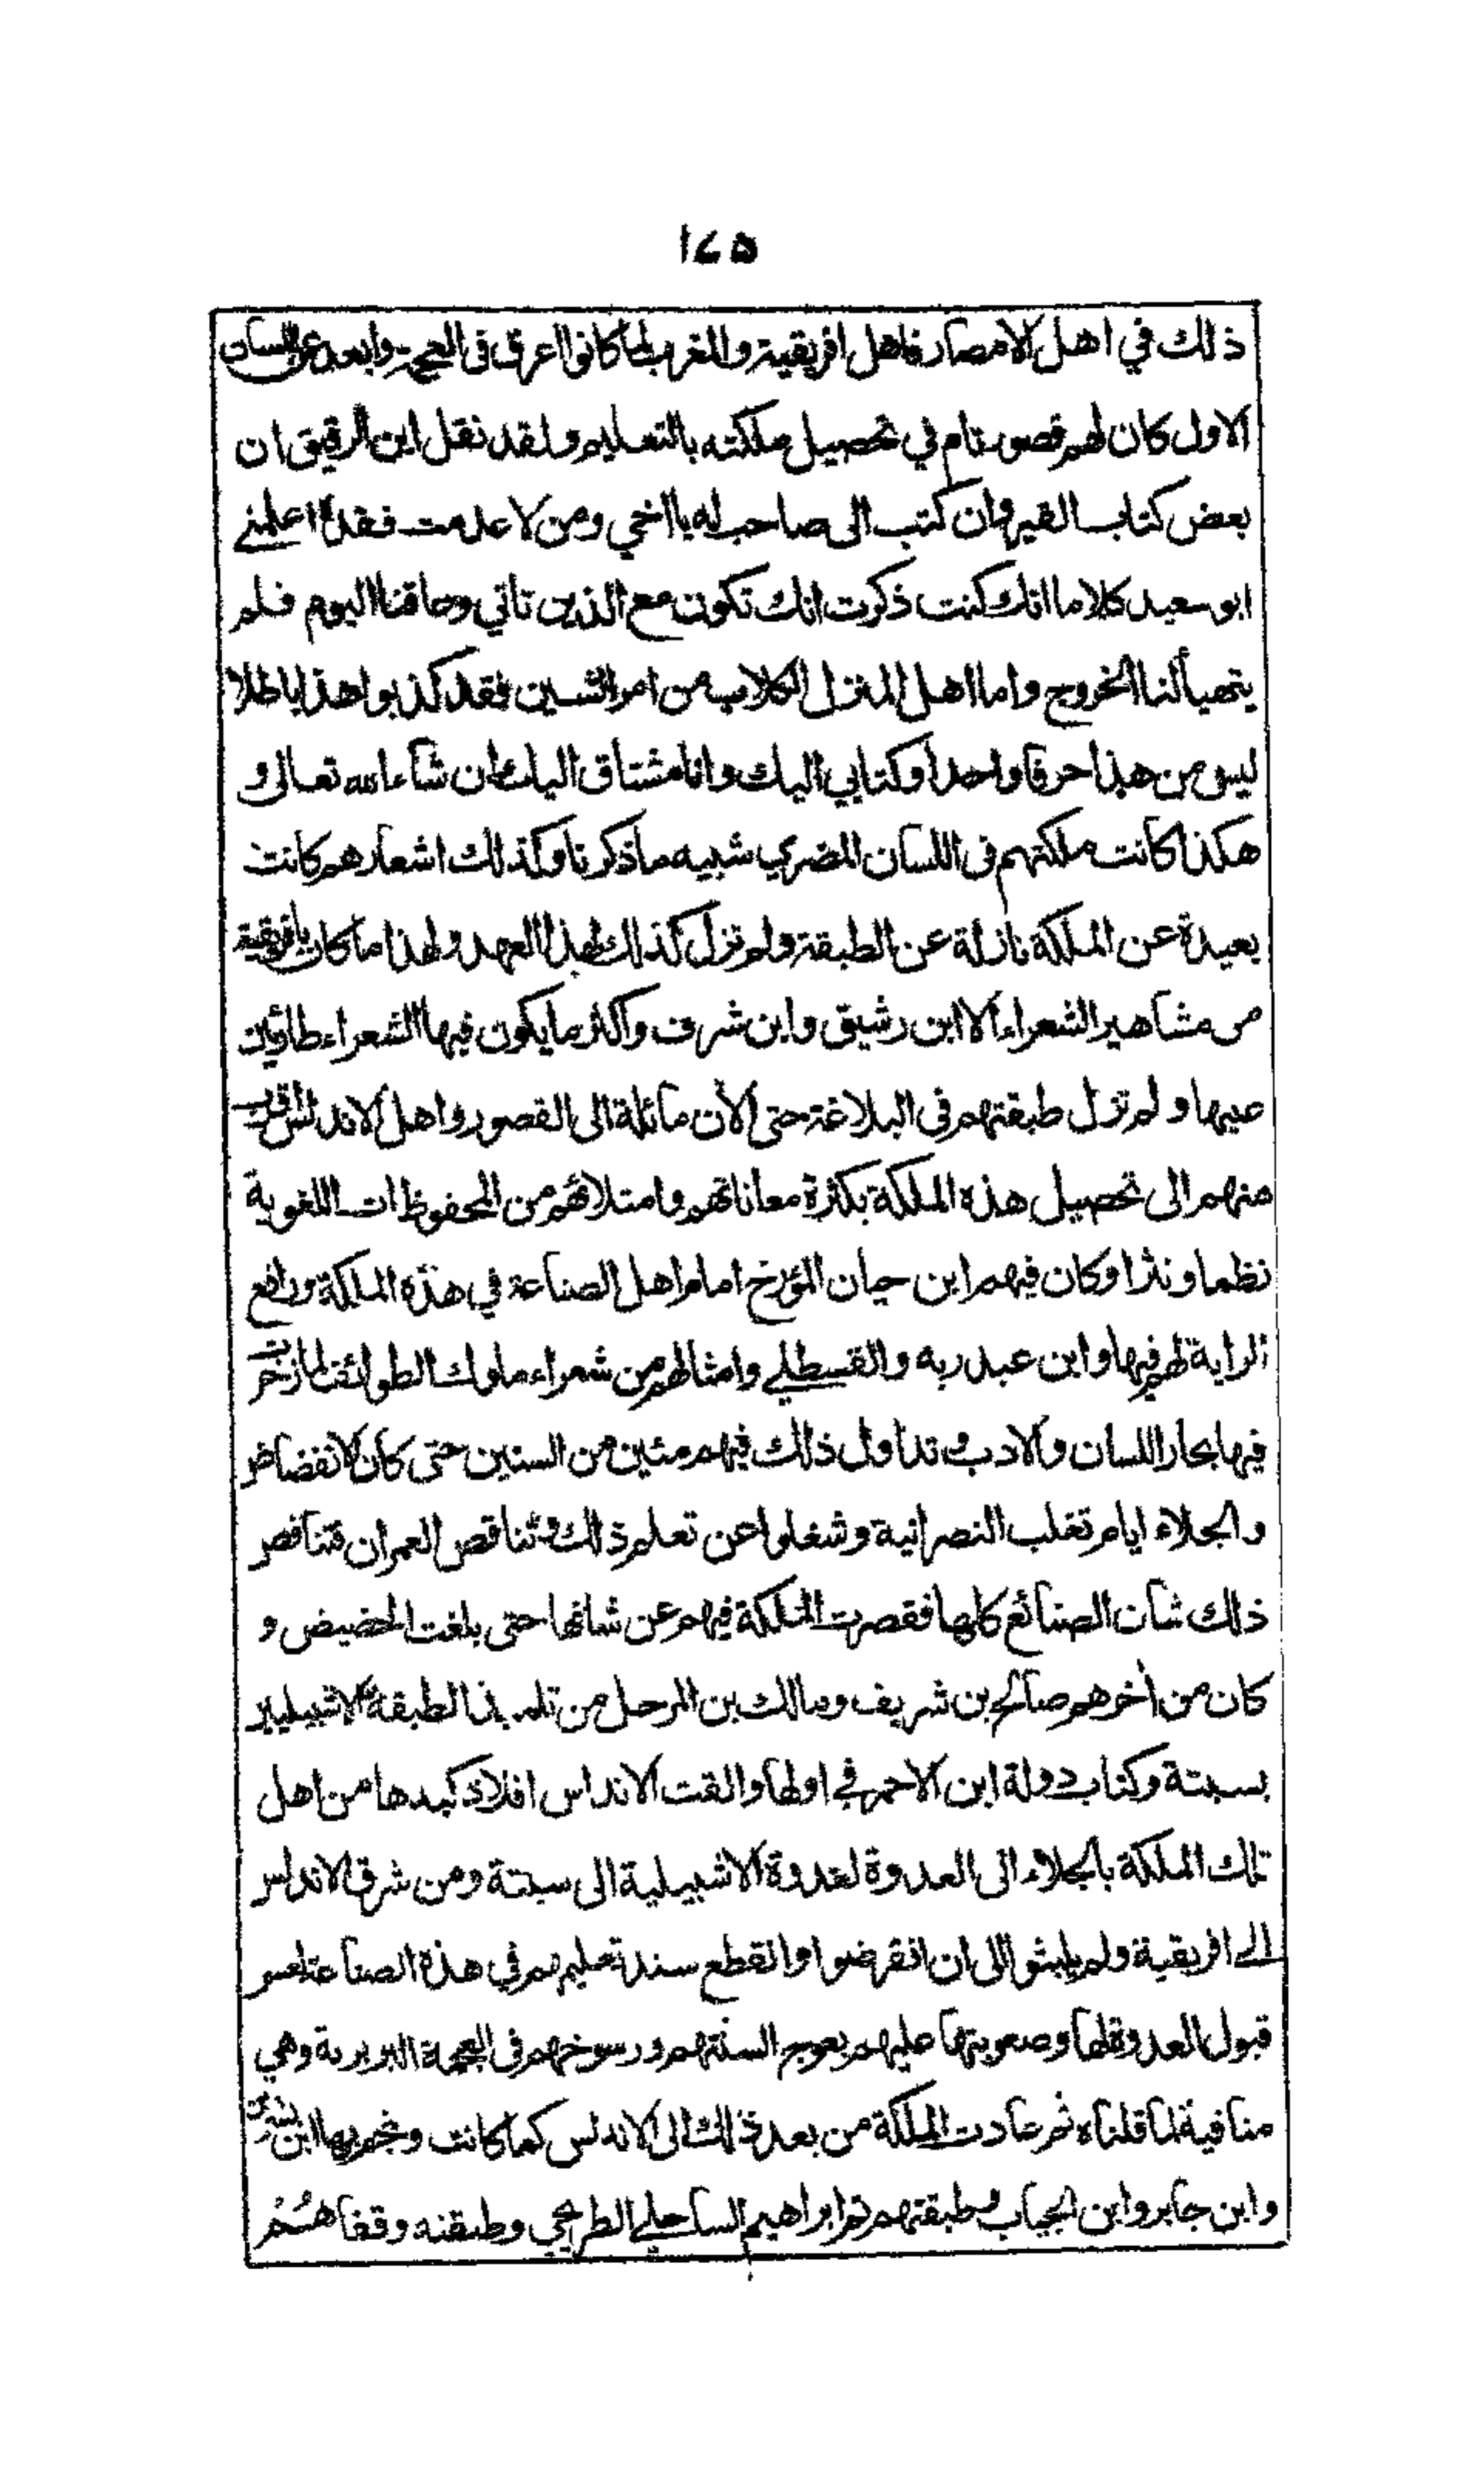 ١٤٥
ذلك في اهل الامصار فاهل افريقية والمغرب لما كانوا اعرق فى العجمة وابعد عن اللسان
الاول كان لهم قصور تام في تحصيل ملكته بالتعليم ولقد نقل ابن الرقيق ان
بعض كتاب القيروان كتب الى صاحب له يا اخي ومن لا عدمت فقده اعلمني
ابو سعيد كلاما انك كنت ذكرت انك تكون مع الذين تاتي وعاقنا اليوم فلم
يتهيأ لنا الخروج واما اهل المنزل الكلاب من امر الشين فقد كذبوا هذا باطلا
ليس من هذا حرفا واحدا وكتابي اليك وانا مشتاق اليك ان شآء الله تعالى و
هكذا كانت ملكتهم فى اللسان المضري شبيه ما ذكرنا وكذلك اشعارهم كانت
بعيدة عن الملكة نازلة عن الطبقة ولم تزل كذلك لهذا العهد ولهذا ما كان بافريقية
من مشاهير الشعراء الا ابن رشيق وابن شرف واكثر ما يكون فيها الشعراء طارئين
عيها ولم تزل طبقتهم فى البلاغة حتى الآن مآئلة الى القصور واهل الاندلس اقرب
منهم الى تحصيل هذه الملكة بكثرة معاناتهم وامتلائهم من المحفوظات اللغوية
نظما ونثرا وكان فيهم ابن حيان المؤرخ امام اهل الصناعة في هذه الملكة ورافع
الراية لهم فيها وابن عبد ربه والقسطلي وامثالهم من شعراء ملوك الطوائف لما زخرت
فيها بحار اللسان والادب وتداول ذلك فيهم مئين من السنين حتى كان الانفضاض
والجلاء ايام تغلب النصرانية وشغلوا عن تعلم ذلك وتناقص العمران فتناقص
ذلك شأن الصنائع كلها فقصرت الملكة فيهم عن شانها حتى بلغت الحضيض و
كان من آخرهم صالح بن شريف ومالك بن المرحل من تلميذ الطبقة الاشبيليين
بسبتة وكتاب دولة ابن الاحمر في اولها والقت الاندلس افلاذ كبدها من اهل
تلك الملكة بالجلاء الى العدوة لعدوة الاشبيلية الى سبتة ومن شرق الاندلس
الى افريقية ولم يلبثوا الى ان انقرضوا وانقطع سند تعليمهم في هذه الصناعة لعسر
قبول العدوة لها وصعوبتها عليهم بعوج السنتهم ورسوخهم فى العجمة البربرية وهي
منافية لما قلناه ثم عادت الملكة من بعد ذلك الى الاندلس كما كانت ونجم بها ابن بشرين
وابن جابر وابن الجياب وطبقتهم ثم ابراهيم الساحلي الطريحي وطبقته وقفاهم